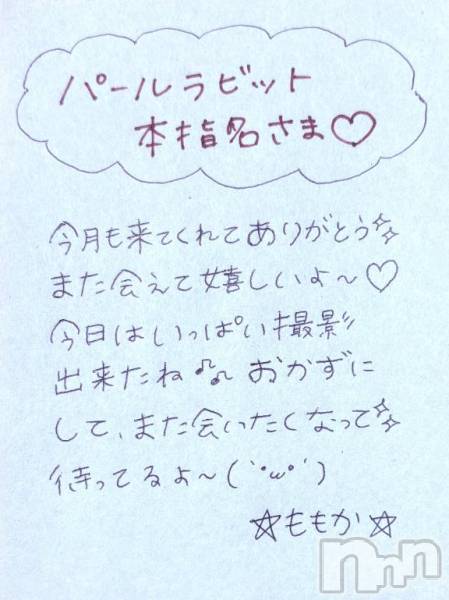 パールラビット
本指名さま♡
今月も来てくれてありがとう✨
また会えて嬉しいよ〜♡
今日はいっぱい撮影
出来たね♫ おかずに
して、また会いたくなって✨
待ってるよ〜(´•ω•`)
☆ももか☆
nnn